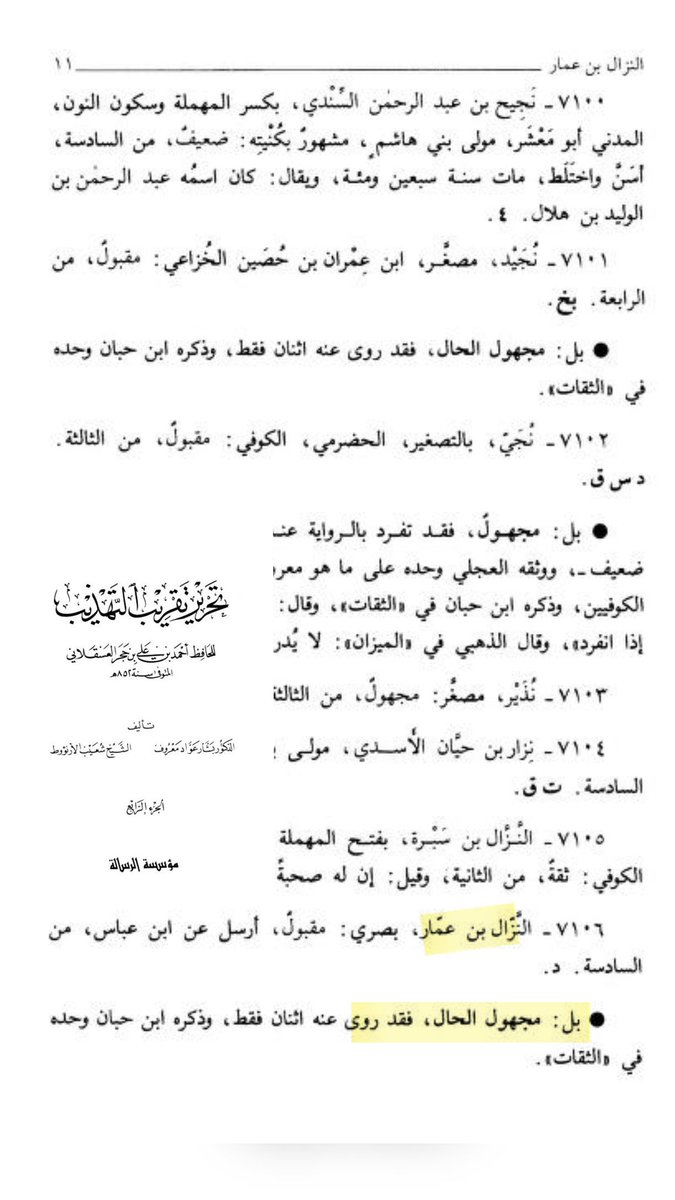 النزال بن عمار ١١
٧١٠٠ ـ نَجِيح بن عبد الرحمٰن السِّنْدي، بكسر المهملة وسكون النون،
المدني أبو مَعْشَر، مولى بني هاشمٍ، مشهورٌ بكُنْيتِه: ضعيفٌ، من السادسة،
أسَنَّ واختَلَط، مات سنة سبعين ومئة، ويقال: كان اسمُه عبد الرحمٰن بن
الوليد بن هلال. ٤.
٧١٠١ ـ نُجَيْد، مصغَّر، ابن عِمْران بن حُصَين الخُزاعي: مقبولٌ، من
الرابعة. بخ.
● بل: مجهول الحال، فقد روى عنه اثنان فقط، وذكره ابن حبان وحده
في «الثقات».
٧١٠٢ ـ نُجَيّ، بالتصغير، الحضرمي، الكوفي: مقبولٌ، من الثالثة.
د س ق.
● بل: مجهولٌ، فقد تفرد بالرواية عنـ
ضعيف ـ، ووثقه العجلي وحده على ما هو معر
الكوفيين، وذكره ابن حبان في «الثقات»، وقال:
إذا انفرد»، وقال الذهبي في «الميزان»: لا يُدر
٧١٠٣ ـ نُذَيْر، مصغَّر: مجهولٌ، من الثالثة
٧١٠٤ ـ نِزار بن حيَّان الأَسدي، مولى
السادسة. ت ق.
٧١٠٥ ـ النَّزَّال بن سَبْرة، بفتح المهملة
الكوفي: ثقةٌ، من الثانية، وقيل: إن له صحبةً
٧١٠٦ ـ النَّزّال بن عمّار، بصري: مقبولٌ، أرسل عن ابن عباس، من
السادسة. د.
● بل: مجهول الحال، فقد روى عنه اثنان فقط، وذكره ابن حبان وحده
في «الثقات».
تحرير تقريب التهذيب
للحافظ أحمد بن علي بن حجر العسقلاني
المتوفى سنة ٨٥٢هـ
تأليف
الدكتور بشار عواد معروف الشيخ شعيب الأرنؤوط
الجزء الرابع
مؤسسة الرسالة